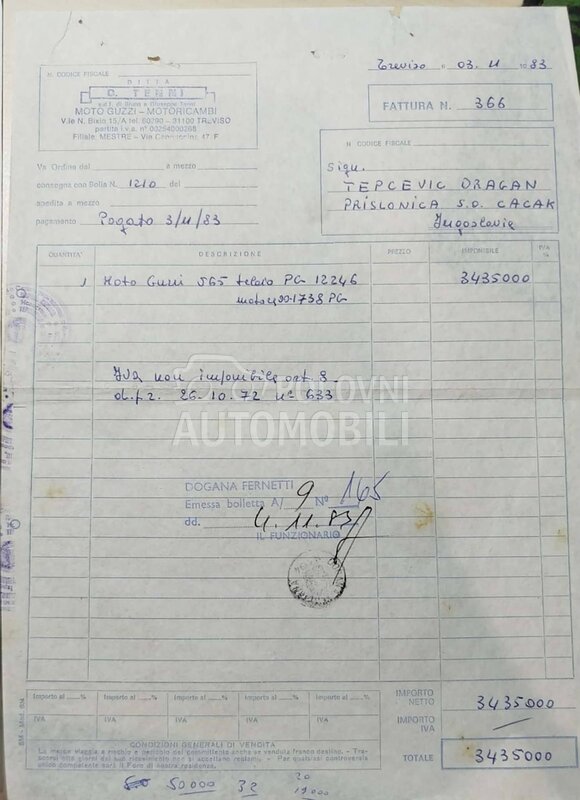 Treviso 03 11 1983
N. CODICE FISCALE
DITTA
C. TENNI
MOTO GUZZI - MOTORICAMBI
V.le N. Bixio 15/A tel. 60290 - 31100 TREVISO
partita i.v.a. n° 00254000268
Filiale: MESTRE - Via Cappuccina, 47 F
FATTURA N. 366
N. CODICE FISCALE
Sign.
TEPCEVIC DRAGAN
PRISLONICA S.O. CACAK
Jugoslavia
Vs. Ordine del a mezzo
consegna con Bolla N. 1210 del
spedita a mezzo
pagamento Pagato 3/11/83
QUANTITA' DESCRIZIONE PREZZO IMPONIBILE IVA %
1 Moto Guzzi S65 telaio PG 12246 3435000
PG
IVA non imponibile art. 8
d.p.r. 26.10.72 n° 633
POLOVNI
AUTOMOBILI
DOGANA FERNETTI
Emessa bolletta A/ 9 N° 165
dd. 4.11.83
IL FUNZIONARIO
Importo al % Importo al % Importo al % Importo al % Importo al %
IVA IVA IVA IVA IVA
IMPORTO NETTO 3435000
IMPORTO IVA
TOTALE 3435000
CONDIZIONI GENERALI DI VENDITA
La merce viaggia a rischio e pericolo del committente anche se venduta franco destino. - Tra-
scorsi otto giorni dal suo ricevimento non si accettano reclami. - Per qualsiasi controversia
unico competente sarà il Foro di nostra residenza.
50000 32 20